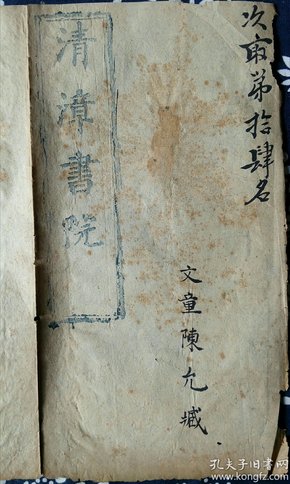 次取第拾肆名
清漳書院
文童陳允臧
孔夫子旧书网
www.kongfz.com